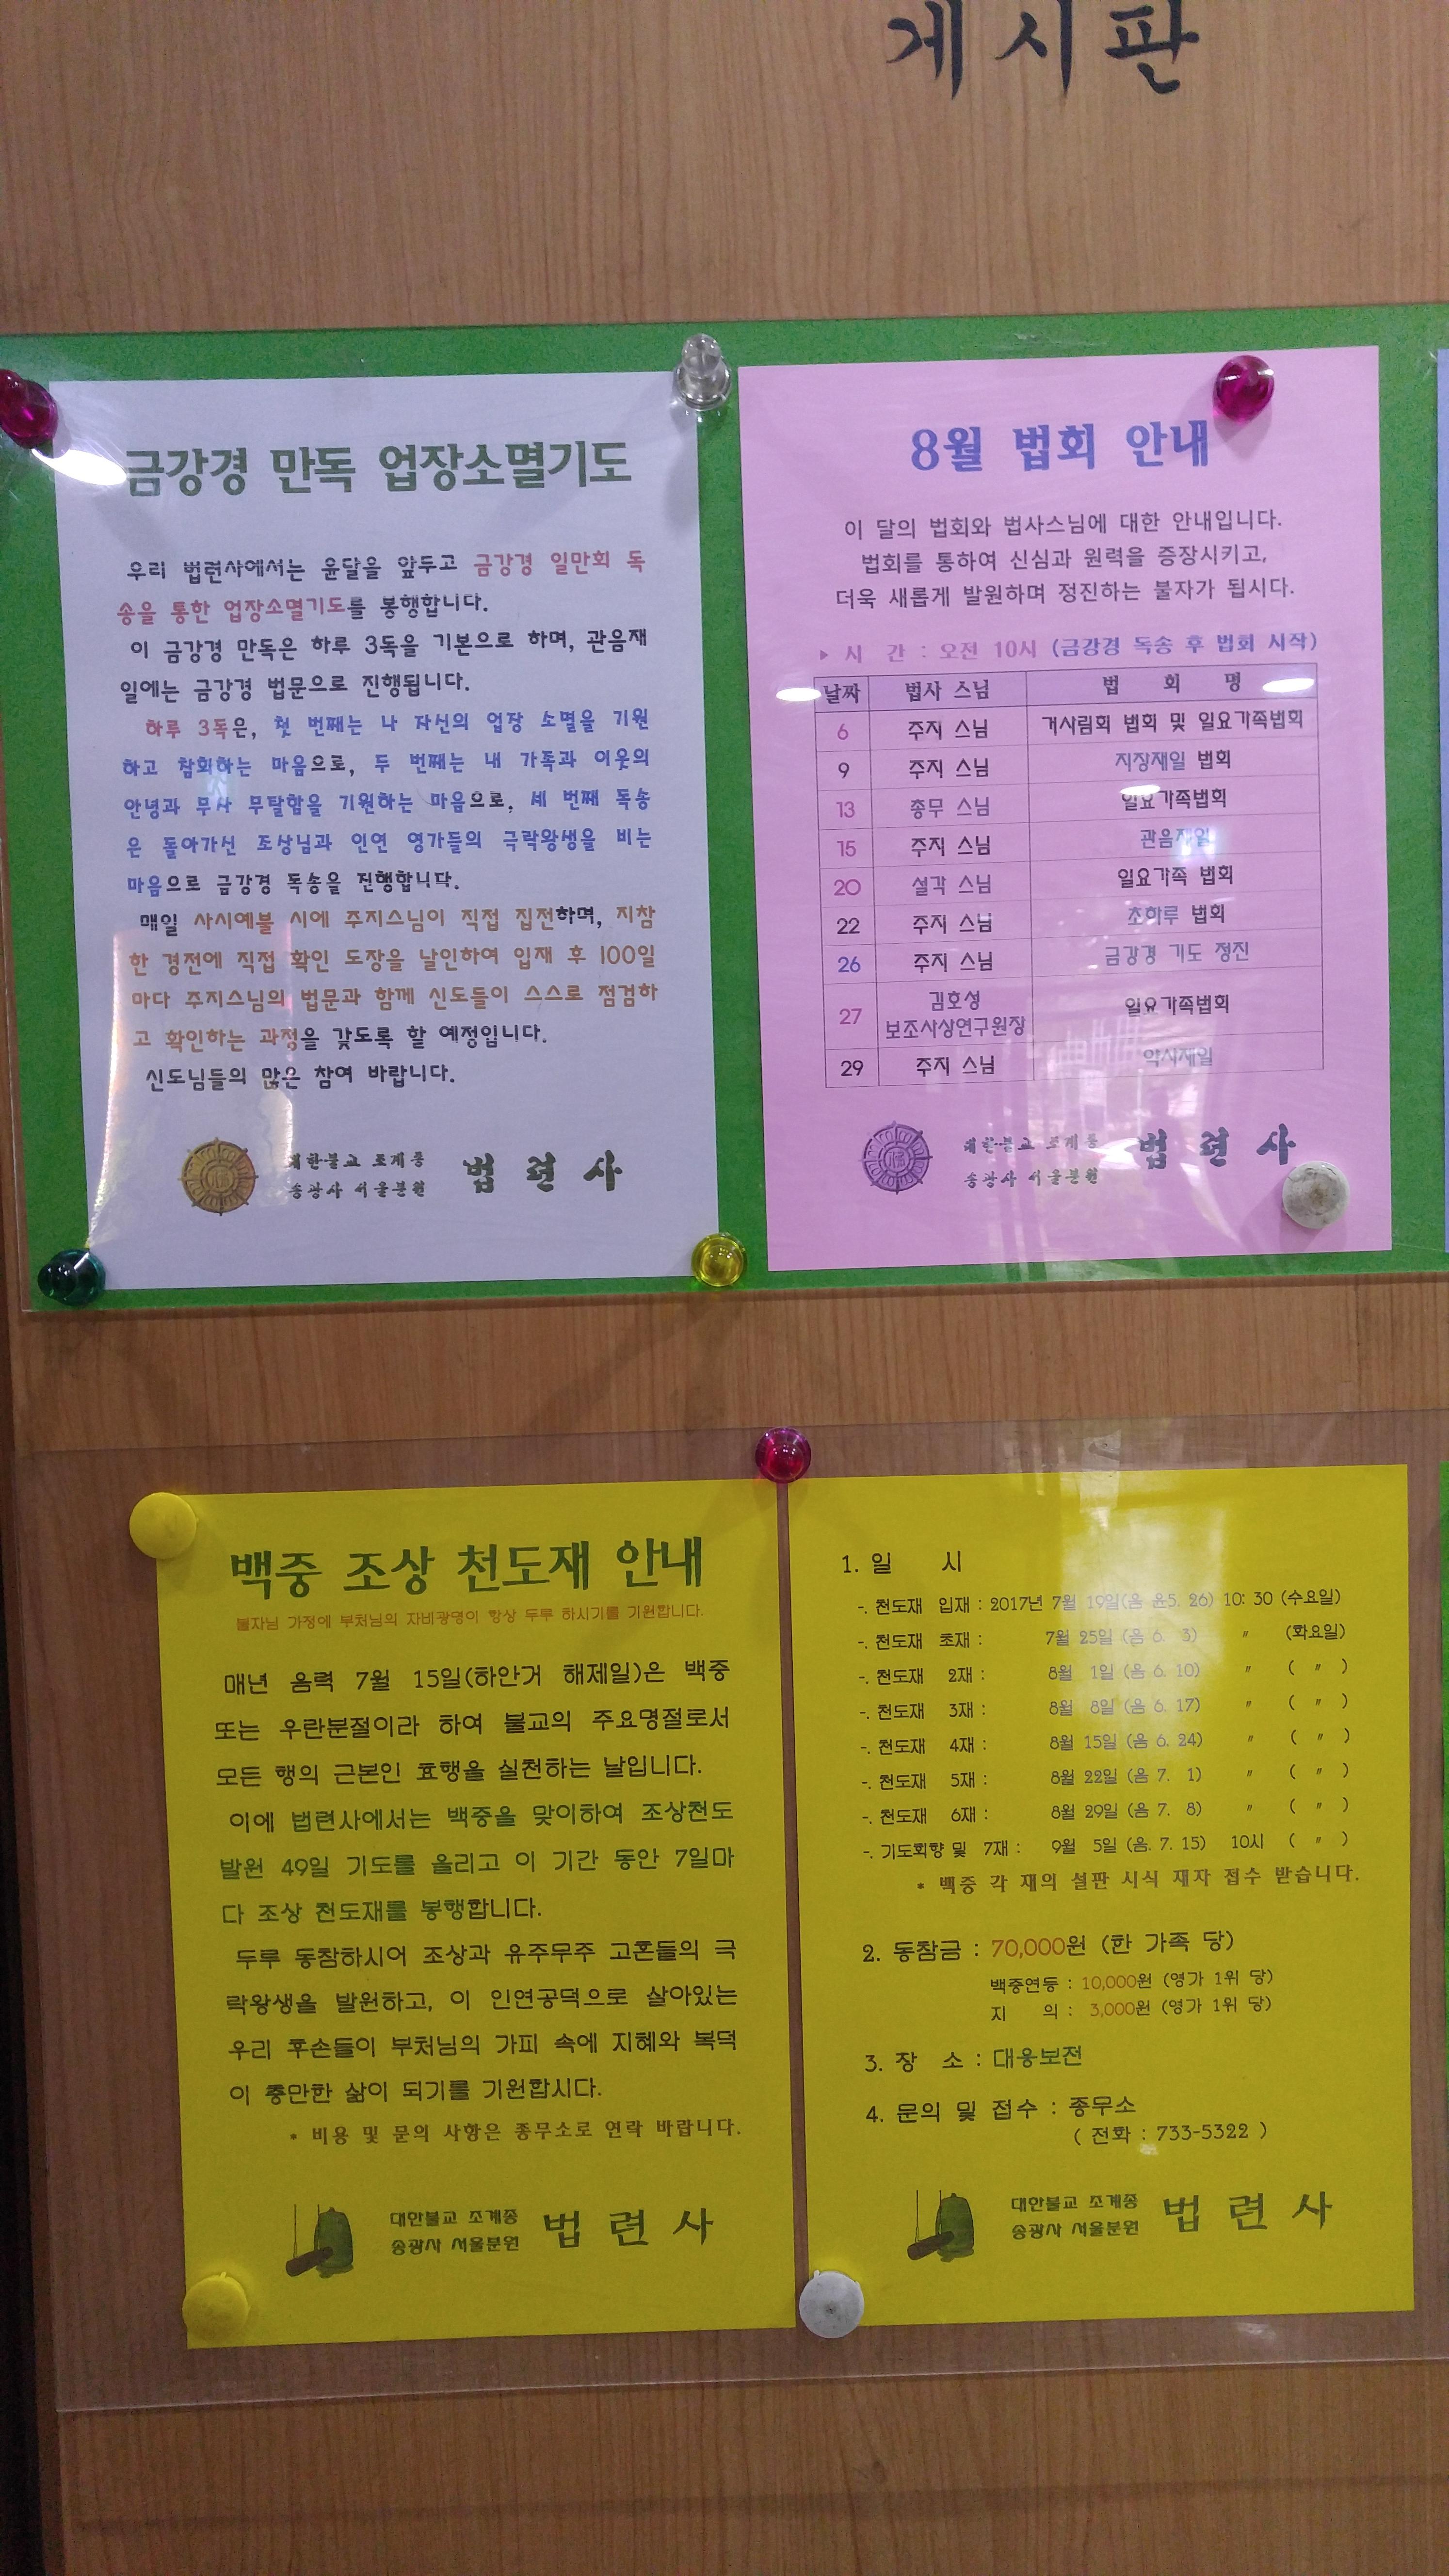 게시판
금강경 만독 업장소멸기도
우리 법련사에서는 윤달을 앞두고 금강경 일만회 독
송을 통한 업장소멸기도를 봉행합니다.
이 금강경 만독은 하루 3독을 기본으로 하며, 관음재
일에는 금강경 법문으로 진행됩니다.
하루 3독은, 첫 번째는 나 자신의 업장 소멸을 기원
하고 참회하는 마음으로, 두 번째는 내 가족과 이웃의
안녕과 무사 무탈함을 기원하는 마음으로, 세 번째 독송
은 돌아가신 조상님과 인연 영가들의 극락왕생을 비는
마음으로 금강경 독송을 진행합니다.
매일 사시예불 시에 주지스님이 직접 집전하며, 지참
한 경전에 직접 확인 도장을 날인하여 입재 후 100일
마다 주지스님의 법문과 함께 신도들이 스스로 점검하
고 확인하는 과정을 갖도록 할 예정입니다.
신도님들의 많은 참여 바랍니다.
대한불교 조계종
송광사 서울분원
법련사
8월 법회 안내
이 달의 법회와 법사스님에 대한 안내입니다.
법회를 통하여 신심과 원력을 증장시키고,
더욱 새롭게 발원하며 정진하는 불자가 됩시다.
▶ 시 간 : 오전 10시 (금강경 독송 후 법회 시작)
날짜 법사 스님 법 회 명
6 주지 스님 거사림회 법회 및 일요가족법회
9 주지 스님 지장재일 법회
13 총무 스님 일요가족법회
15 주지 스님 관음재일
20 설각 스님 일요가족 법회
22 주지 스님 초하루 법회
26 주지 스님 금강경 기도 정진
27 김호성 보조사상연구원장 일요가족법회
29 주지 스님 약사재일
대한불교 조계종
송광사 서울분원
법련사
백중 조상 천도재 안내
불자님 가정에 부처님의 자비광명이 항상 두루 하시기를 기원합니다.
매년 음력 7월 15일(하안거 해제일)은 백중
또는 우란분절이라 하여 불교의 주요명절로서
모든 행의 근본인 효행을 실천하는 날입니다.
이에 법련사에서는 백중을 맞이하여 조상천도
발원 49일 기도를 올리고 이 기간 동안 7일마
다 조상 천도재를 봉행합니다.
두루 동참하시어 조상과 유주무주 고혼들의 극
락왕생을 발원하고, 이 인연공덕으로 살아있는
우리 후손들이 부처님의 가피 속에 지혜와 복덕
이 충만한 삶이 되기를 기원합시다.
* 비용 및 문의 사항은 종무소로 연락 바랍니다.
대한불교 조계종
송광사 서울분원
법련사
1. 일 시
-. 천도재 입재 : 2017년 7월 19일(음 윤5. 26) 10: 30 (수요일)
-. 천도재 초재 : 7월 25일 (음 6. 3) 〃 (화요일)
-. 천도재 2재 : 8월 1일 (음 6. 10) 〃 ( 〃 )
-. 천도재 3재 : 8월 8일 (음 6. 17) 〃 ( 〃 )
-. 천도재 4재 : 8월 15일 (음 6. 24) 〃 ( 〃 )
-. 천도재 5재 : 8월 22일 (음 7. 1) 〃 ( 〃 )
-. 천도재 6재 : 8월 29일 (음 7. 8) 〃 ( 〃 )
-. 기도회향 및 7재 : 9월 5일 (음. 7. 15) 10시 ( 〃 )
* 백중 각 재의 설판 시식 재자 접수 받습니다.
2. 동참금 : 70,000원 (한 가족 당)
백중연등 : 10,000원 (영가 1위 당)
지 의 : 3,000원 (영가 1위 당)
3. 장 소 : 대웅보전
4. 문의 및 접수 : 종무소
( 전화 : 733-5322 )
대한불교 조계종
송광사 서울분원
법련사